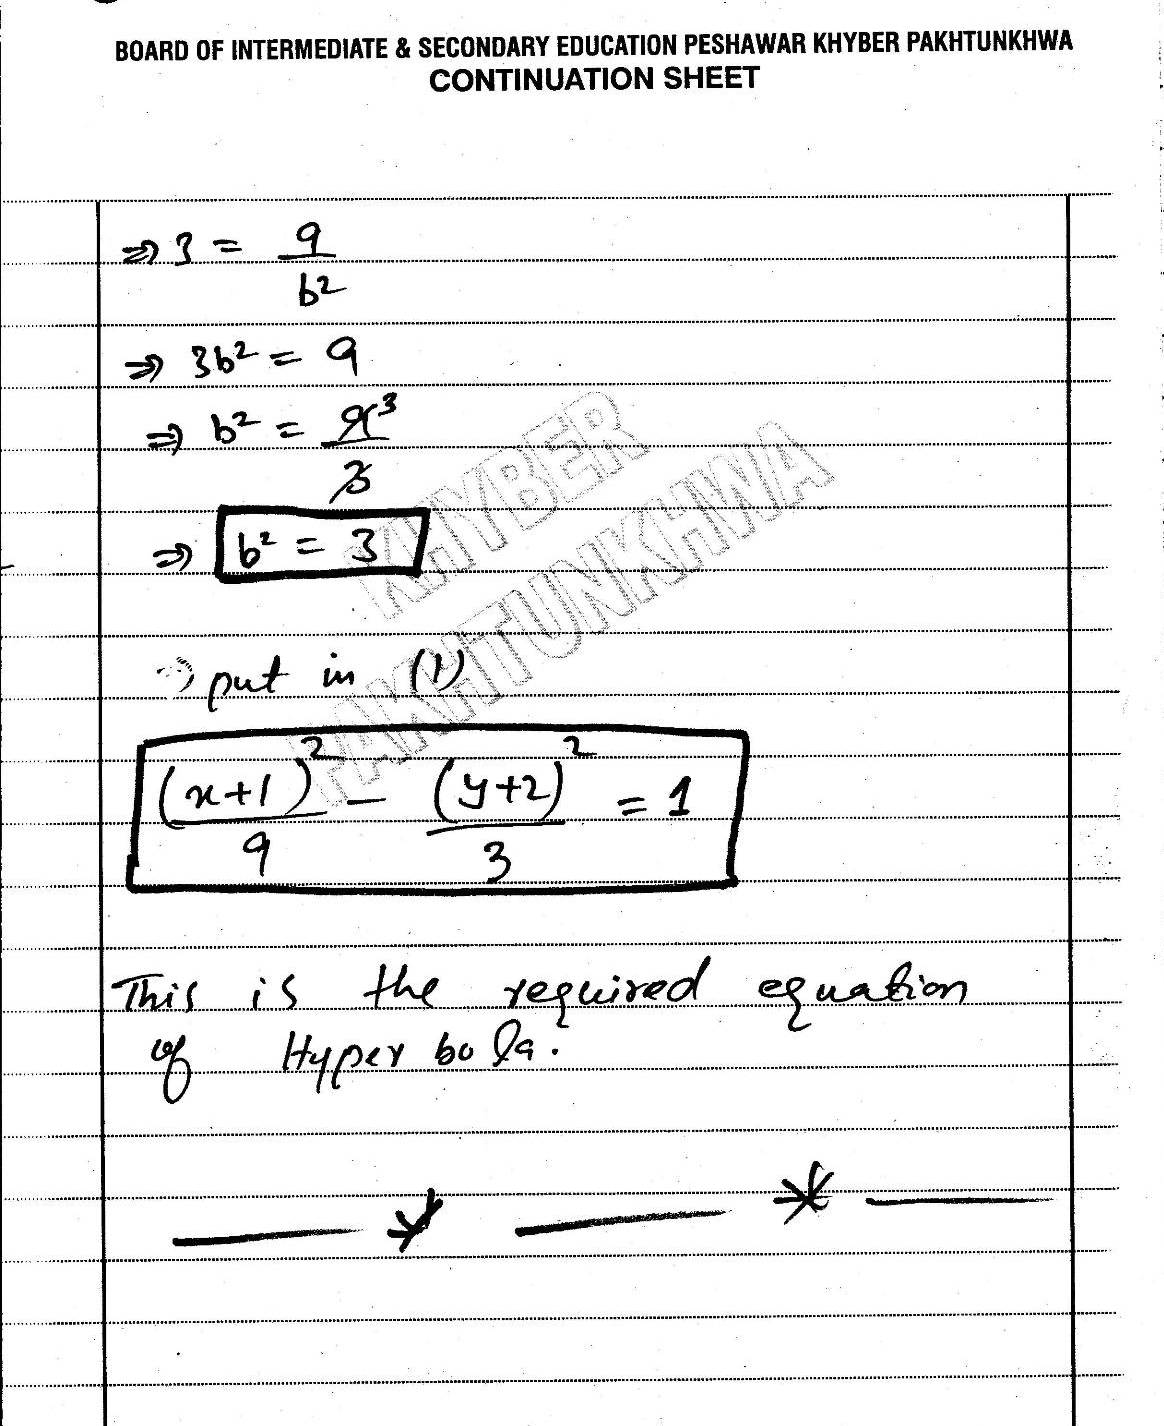 BOARD OF INTERMEDIATE & SECONDARY EDUCATION PESHAWAR KHYBER PAKHTUNKHWA
CONTINUATION SHEET
⇒ 3 = 9/b²
⇒ 3b² = 9
⇒ b² = 9³/3
⇒ b² = 3
KHYBER
PAKHTUNKHWA
⇒ put in (1)
(x+1)²/9 − (y+2)²/3 = 1
This is the required equation
of Hyperbola.